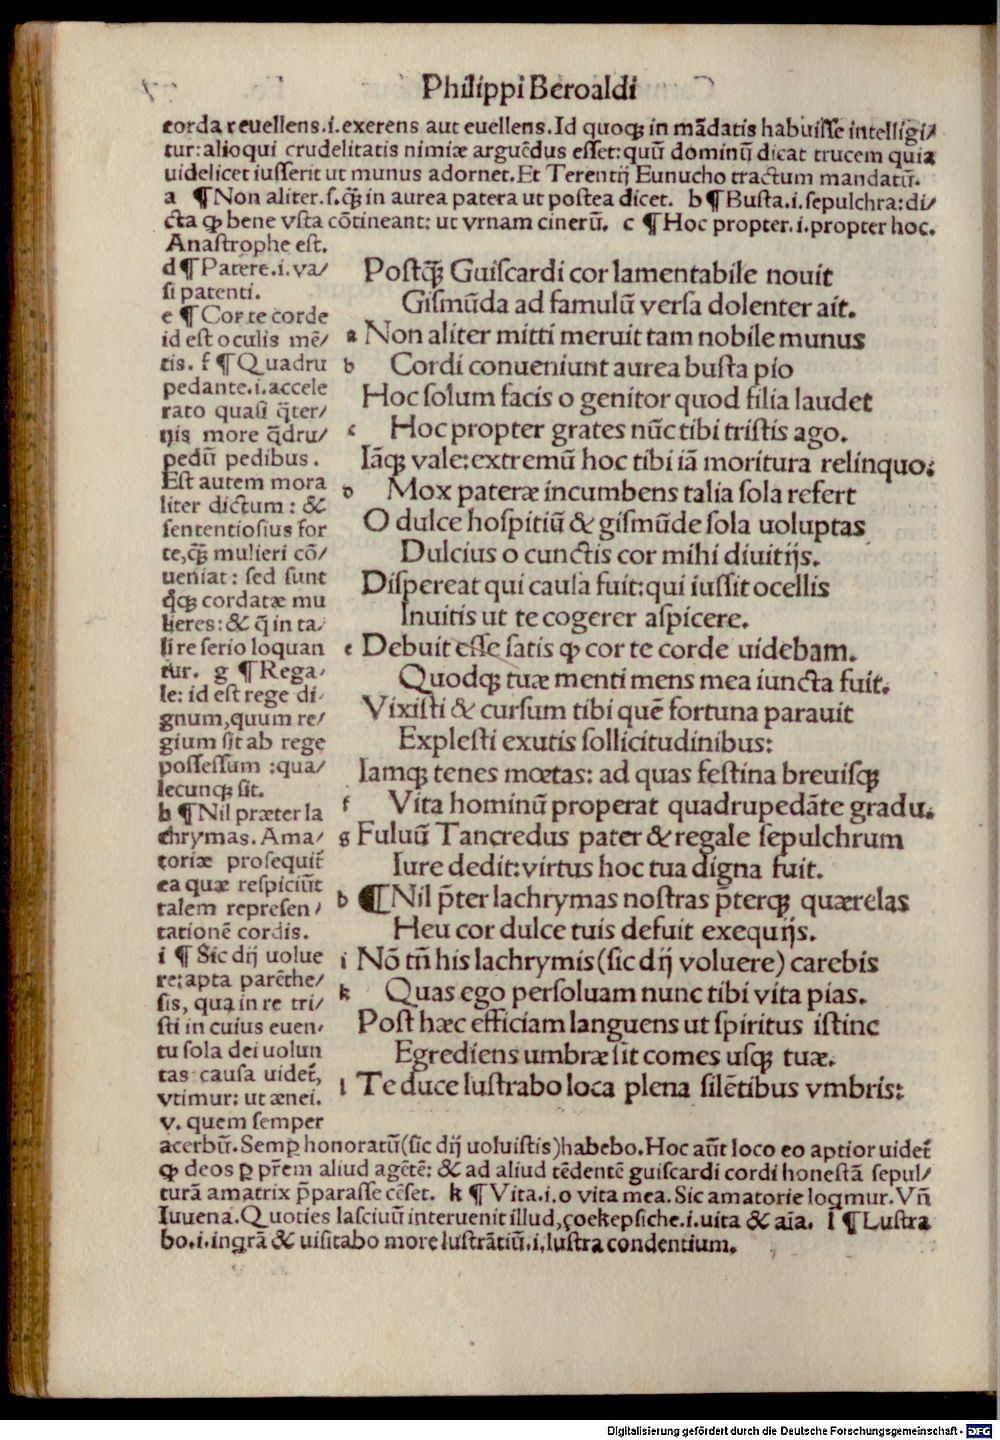 Philippi Beroaldi
corda reuellens.i.exerens aut euellens.Id quoqꝫ in mādatis habuiſſe intelligi/
tur:alioqui crudelitatis nimiæ arguēdus eſſet:quū dominū dicat trucem quia
uidelicet iuſſerit ut munus adornet.Et Terentij Eunucho tractum mandatū.
a ¶Non aliter.ſ.q̄ꝫ in aurea patera ut poſtea dicet. b¶Buſta.i.ſepulchra:di/
cta ꝙ bene vſta cōtineant: ut vrnam cinerū. c ¶Hoc propter.i.propter hoc.
Anaſtrophe eſt.
d¶Patere.i.va/
ſi patenti.
e ¶Cor te corde
id eſt oculis mē/
tis. f ¶Quadru
pedante.i.accele
rato quaſi q̄ter/
nis more q̄dru/
pedū pedibus.
Eſt autem mora
liter dictum: &
ſententioſius for
te,q̄ꝫ mulieri cō/
ueniat: ſed ſunt
q̄qꝫ cordatæ mu
lieres:& q̄ in ta/
li re ſerio loquan
tur. g ¶Rega/
le: id eſt rege di/
gnum,quum re/
gium ſit ab rege
poſſeſſum :qua/
lecunqꝫ ſit.
h ¶Nil præter la
chrymas. Ama/
toriæ proſequit̄
ea quæ reſpiciūt
talem repreſen/
tationē cordis.
i ¶Sic dij uolue
re:apta parēthe/
ſis, qua in re tri/
ſti in cuius euen/
tu ſola dei uolun
tas cauſa uidet̄,
vtimur: ut ænei.
v. quem ſemper
Poſtq̄ꝫ Guiſcardi cor lamentabile nouit
Giſmūda ad famulū verſa dolenter ait.
a Non aliter mitti meruit tam nobile munus
b Cordi conueniunt aurea buſta pio
Hoc ſolum facis o genitor quod filia laudet
c Hoc propter grates nūc tibi triſtis ago.
Iāqꝫ vale:extremū hoc tibi iā moritura relinquo:
d Mox pateræ incumbens talia ſola refert
O dulce hoſpitiū & giſmūde ſola uoluptas
Dulcius o cunctis cor mihi diuitijs.
Diſpereat qui cauſa fuit:qui iuſſit ocellis
Inuitis ut te cogerer aſpicere.
e Debuit eſſe ſatis ꝙ cor te corde uidebam.
Quodqꝫ tuæ menti mens mea iuncta fuit.
Vixiſti & curſum tibi quē fortuna parauit
Expleſti exutis ſollicitudinibus:
Iamqꝫ tenes mœtas: ad quas feſtina breuiſqꝫ
f Vita hominū properat quadrupedāte gradu.
g Fuluū Tancredus pater & regale ſepulchrum
Iure dedit:virtus hoc tua digna fuit.
h ¶Nil p̄ter lachrymas noſtras p̄terqꝫ quærelas
Heu cor dulce tuis defuit exequijs.
i Nō tn̄ his lachrymis(ſic dij voluere) carebis
k Quas ego perſoluam nunc tibi vita pias.
Poſt hæc efficiam languens ut ſpiritus iſtinc
Egrediens umbræ ſit comes uſqꝫ tuæ.
l Te duce luſtrabo loca plena ſilētibus vmbris:
acerbū.Semꝑ honoratū(ſic dij uoluiſtis)habebo.Hoc aūt loco eo aptior uidet̄
ꝙ deos ꝑ pr̄em aliud agētē: & ad aliud tēdentē guiſcardi cordi honeſtā ſepul/
turā amatrix p̄paraſſe cēſet. k ¶Vita.i.o vita mea.Sic amatorie loqmur.Vn̄
Iuuena.Quoties laſciuū interuenit illud,çoekepſiche.i.uita & aīa. l ¶Luſtra
bo.i.ingrā & uiſitabo more luſtrātiū.i,luſtra condentium.
Digitalisierung gefördert durch die Deutsche Forschungsgemeinschaft - DFG